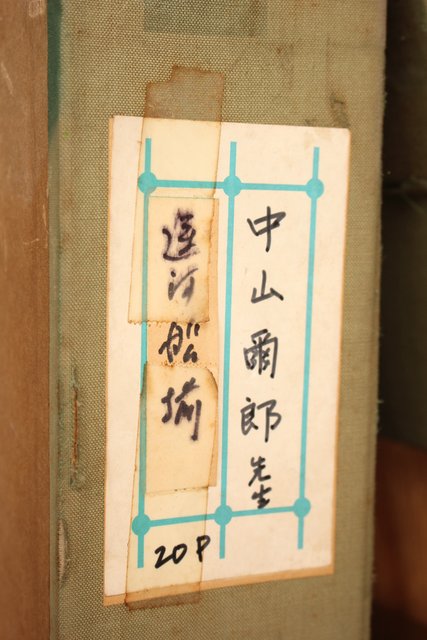 中山爾郎先生
運河船揃
20P